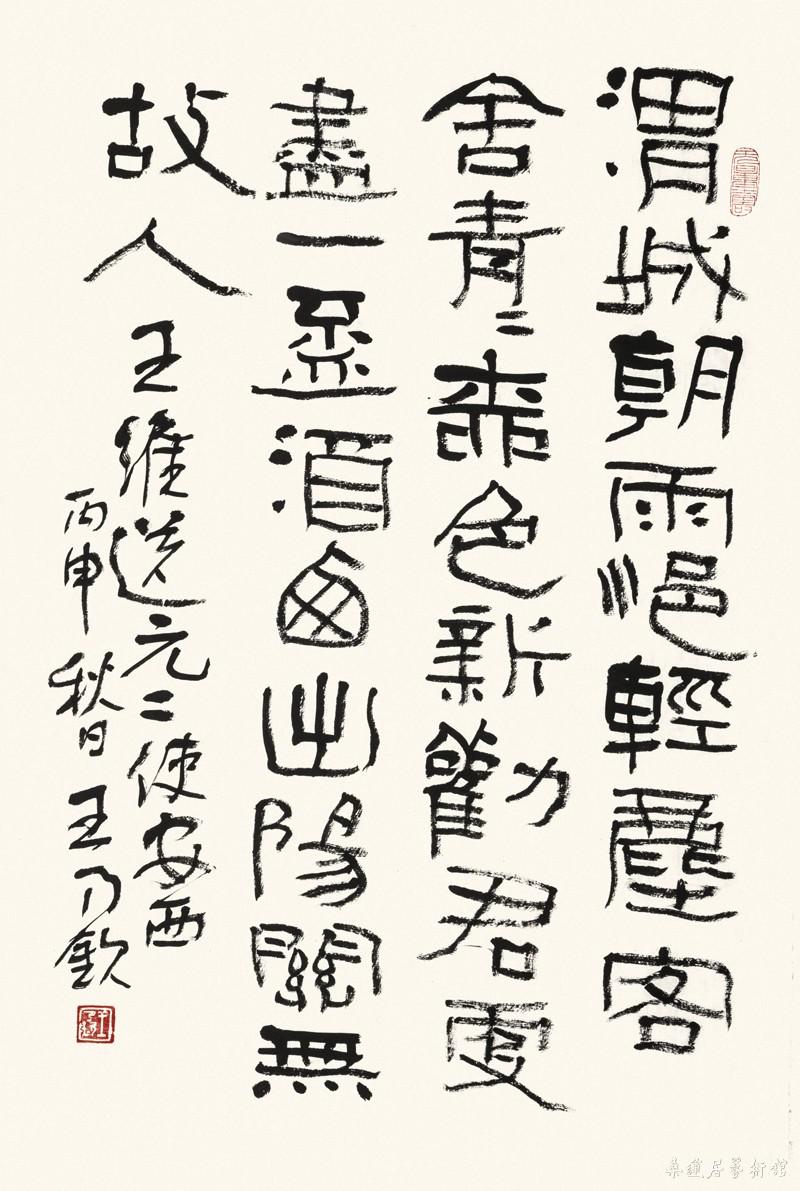 渭城朝雨浥輕塵客
舍青〻柳色新勸君更
盡一盃酒西出陽關無
故人
王維送元二使安西
丙申秋日王乃欽
桑蓮居藝術館